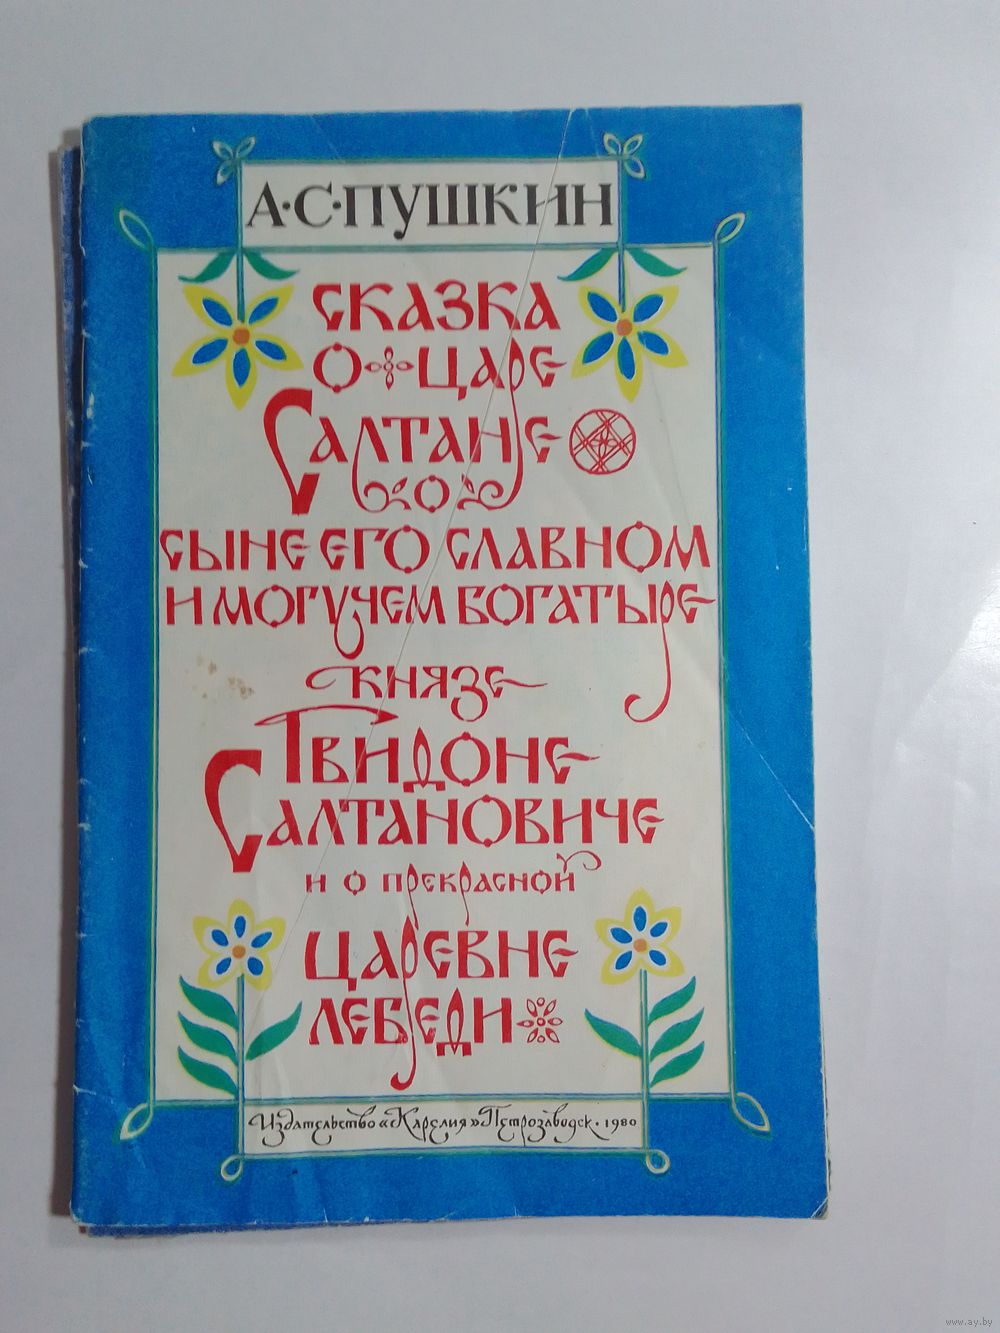 А·С·ПУШКИН
СКАЗКА
О ЦАРЕ
САЛТАНЕ
О
СЫНЕ ЕГО СЛАВНОМ
И МОГУЧЕМ БОГАТЫРЕ
КНЯЗЕ
ГВИДОНЕ
САЛТАНОВИЧЕ
И О ПРЕКРАСНОЙ
ЦАРЕВНЕ
ЛЕБЕДИ
Издательство «Карелия» Петрозаводск·1980
www.ay.by